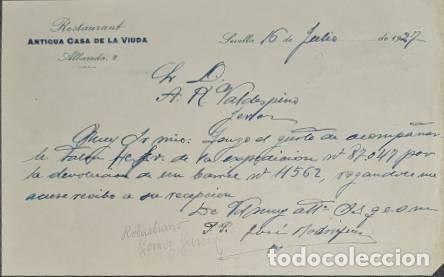 Restaurant
ANTIGUA CASA DE LA VIUDA
Albareda, 2
Sevilla 16 de Julio de 1927
Sr D.
A. R Valdespino
Jerez
Muy Sr mio: Tengo el gusto de acompañar
le talon de la expedicion nº 87.047 por
la devolucion de un barril nº 11562, rogandome
acuse recibo a su recepcion
De Vd muy attº
P.P. José Rodriguez
todocoleccion
todocoleccion.net